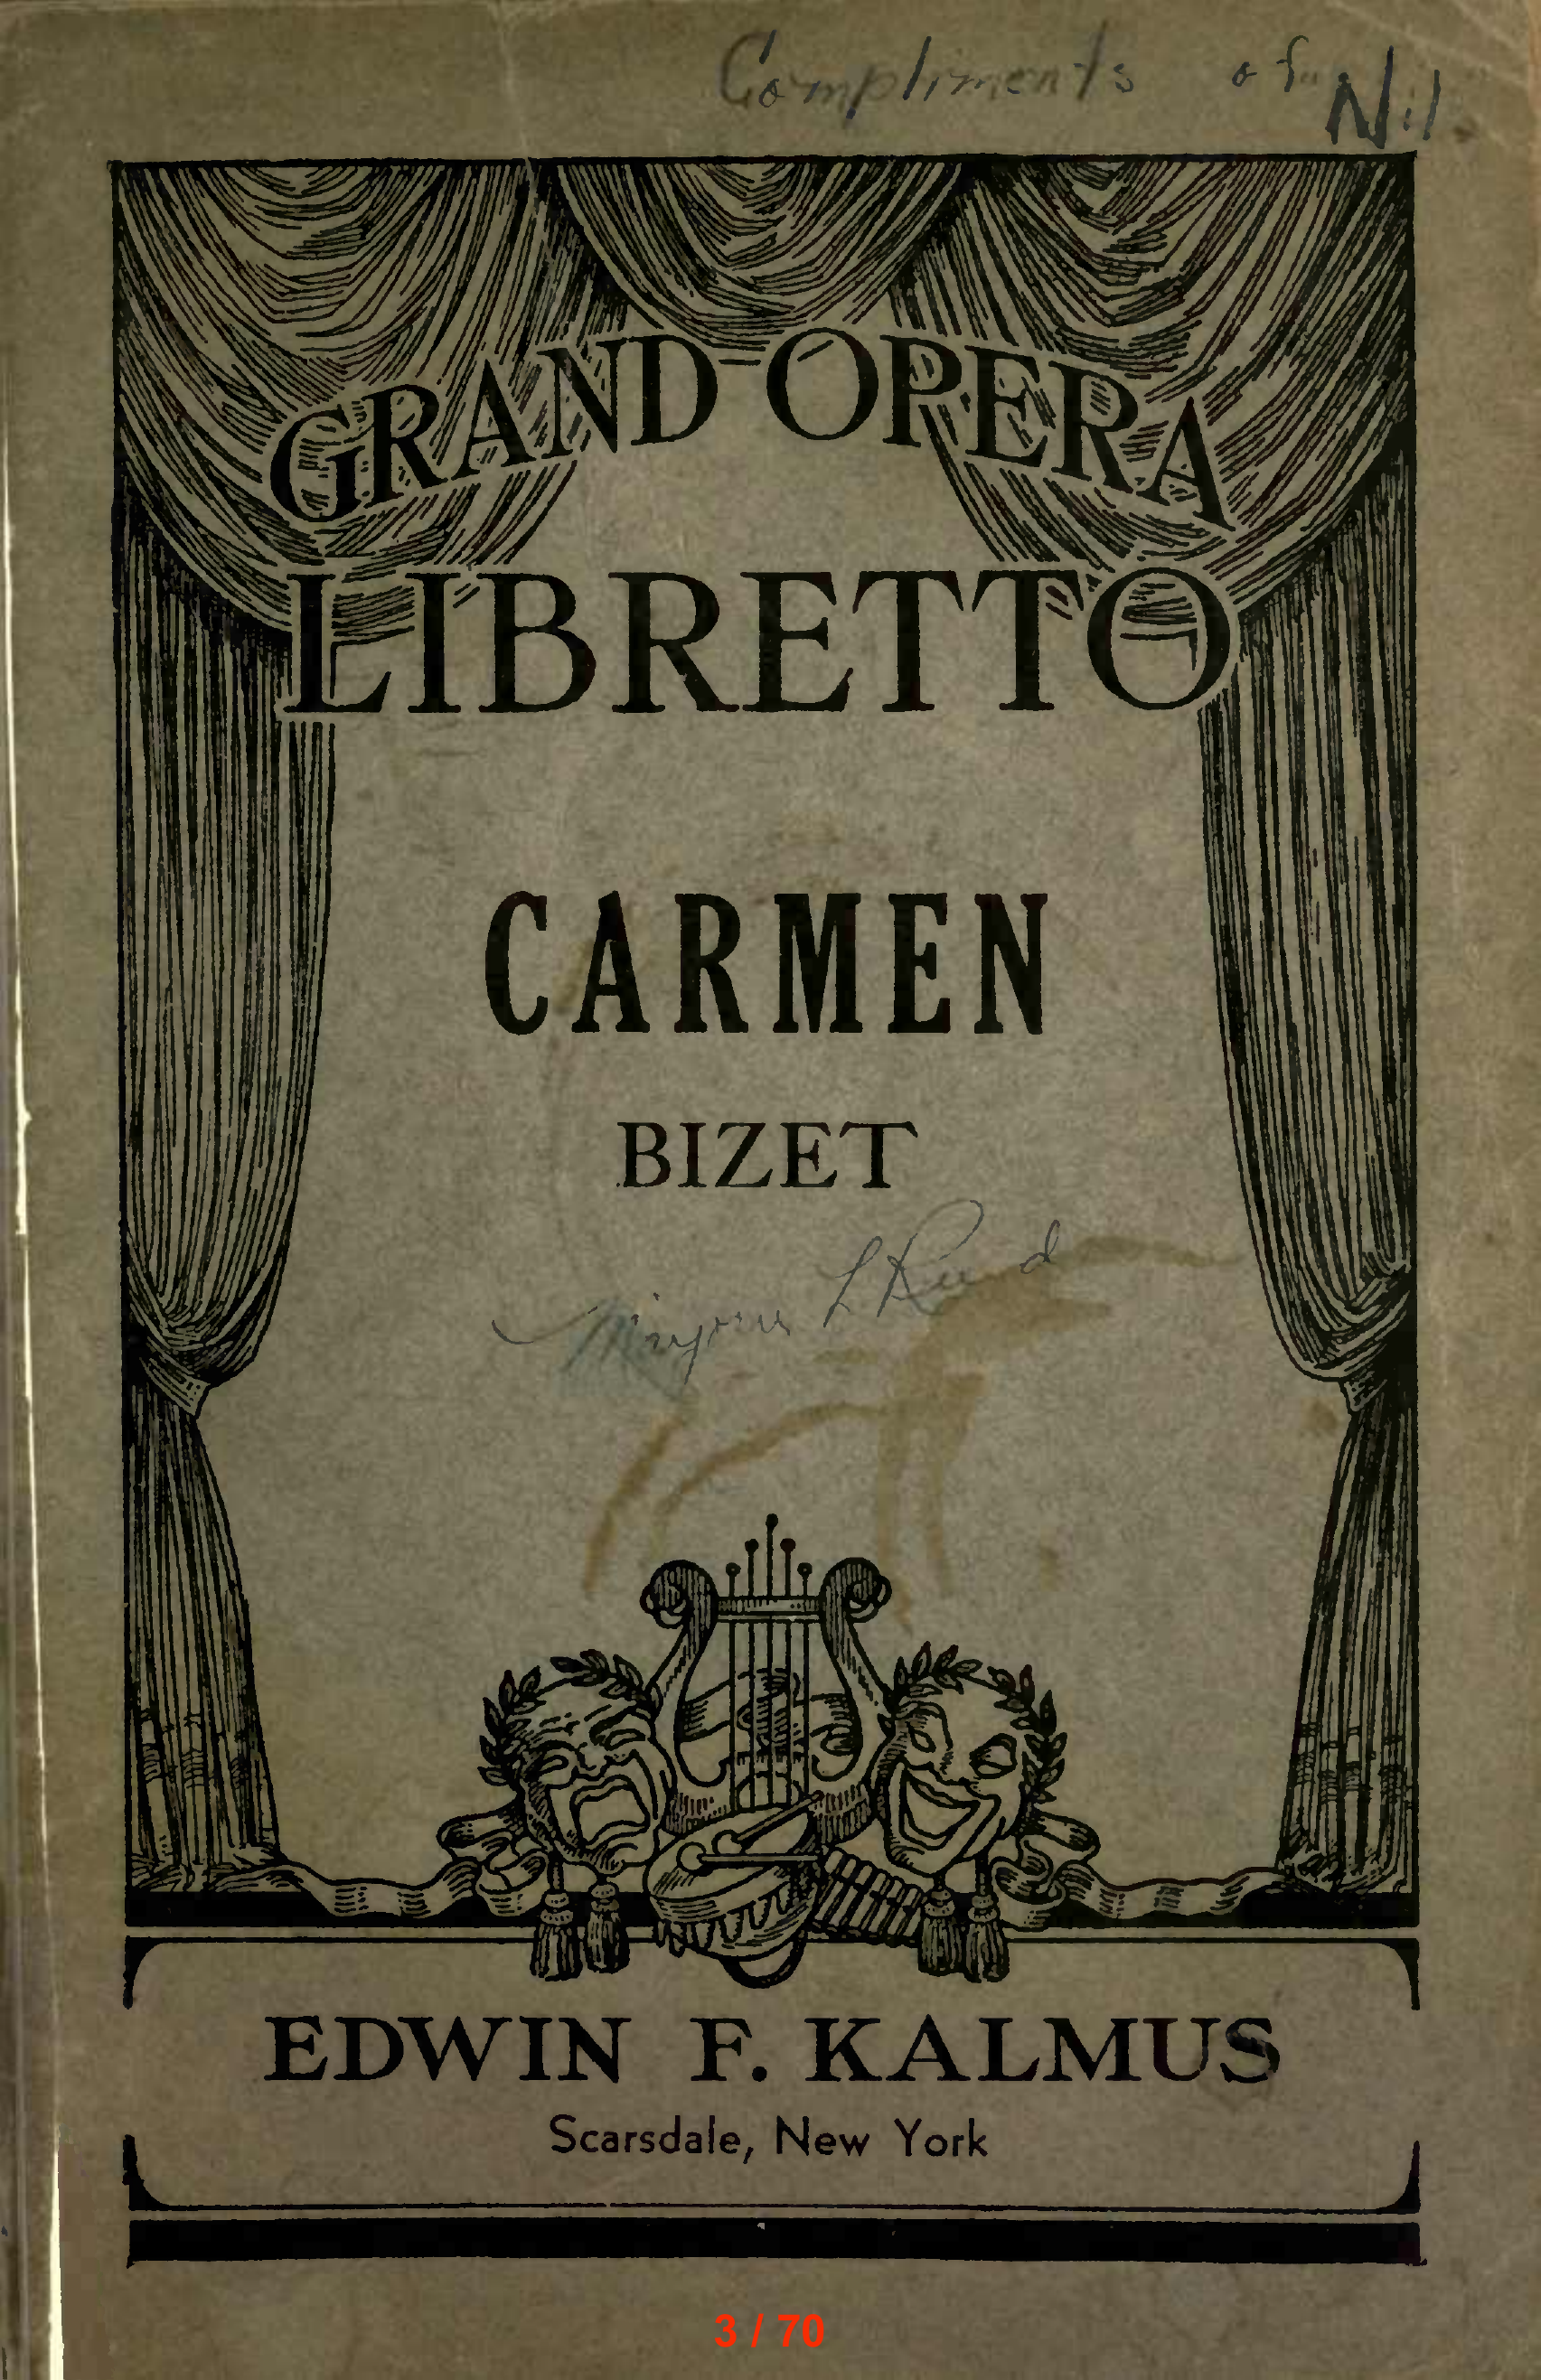 Compliments of Nil
GRAND OPERA
LIBRETTO
CARMEN
BIZET
L Reed
EDWIN F. KALMUS
Scarsdale, New York
3 / 70